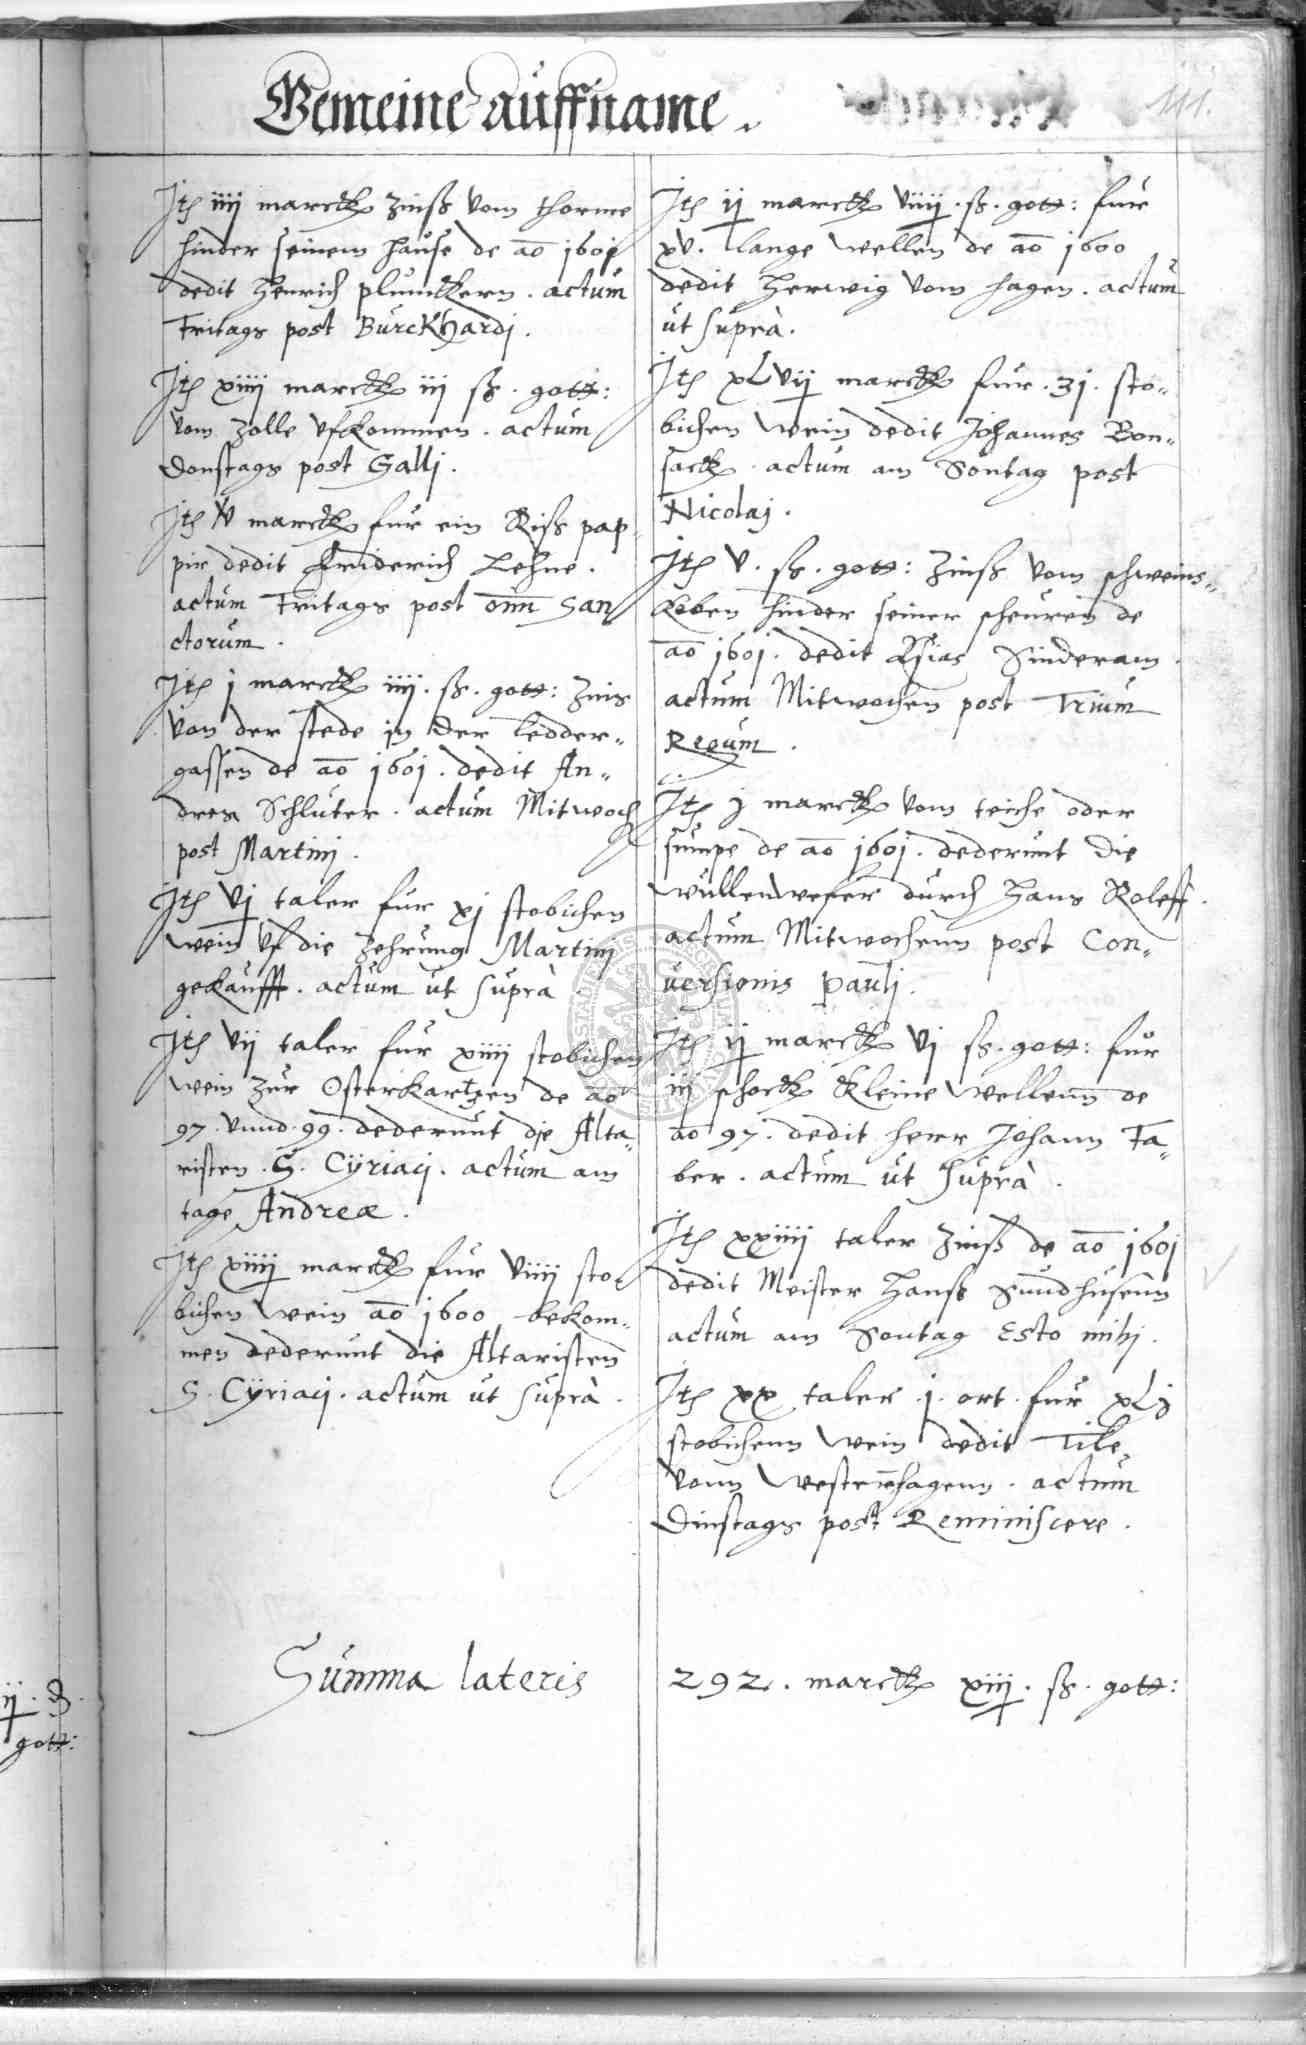 Gemeine auffname.
111.
Jtem iiij marck zinß vom thorme
hinder seinem hause de ao 1601
dedit Henrich plunckern. actum
Fritags post Burckhardj.
Jtem xiiij marck iij ß. gott:
vom zolle vfkommen. actum
Donstags post Gallj.
Jtem v marck fur ein Riß pap
pir dedit Friderich Lehne.
actum Fritags post om̄ San
ctorum.
Jtem j marck iiij. ß. gott: zins
von der stede in der Ledder„
gassen de ao 1601. dedit An„
drea Schluter. actum Mitwoch
post Martinj.
Jtem vj taler fur xj stobichen
wein vf die zehrung Martinj
gekaufft. actum ut supra
Jtem vij taler fur xiiij stobichen
wein zur Osterkartzen de ao
97. vnnd. 99. dederunt die Alta„
risten. S. Cÿriacj. actum am
tage Andreæ.
Jtem xiiij marck fur viiij sto„
bichen wein ao 1600 bekom„
men dederunt die Altaristen
S. Cÿriacj. actum ut supra.
Jtem ij marck viiij. ß. gott: fur
xv. lange wellen de ao 1600
dedit Herwig vom Hagen. actum
ut supra.
Jtem xLvij marck fur. 31. sto„
bichen wein dedit Johannes Bon„
sack. actum am Sontag post
Nicolaj.
Jtem v. ß. gott: zinß vom schweins„
koben hinder seiner scheuren de
ao 1601. dedit Sinderam.
actum Mitwochen post Trium
Regum.
Jtem j marck vom teiche oder
sumpe de ao 1601. dederunt die
wullenwefer durch Hans Roleff.
actum Mitwochenn post Con„
versionis Paulj.
Jtem ij marck vj ß. gott: fur
iij schock kleine wellenn de
ao 97. dedit herr Johann Fa„
ber. actum ut supra.
Jtem xxiiij taler zinß de ao 1601
dedit Meister Hanß Sundhusenn
actum am Sontag Esto mihj.
Jtem xx taler. j. ort. fur xLj
stobichenn wein dedit Tile„
vonn Westernhagenn. actum
Dinstags post Reminiscere.
Summa lateris 292. marck xiij. ß. gott:
ij. ₰.
gott: